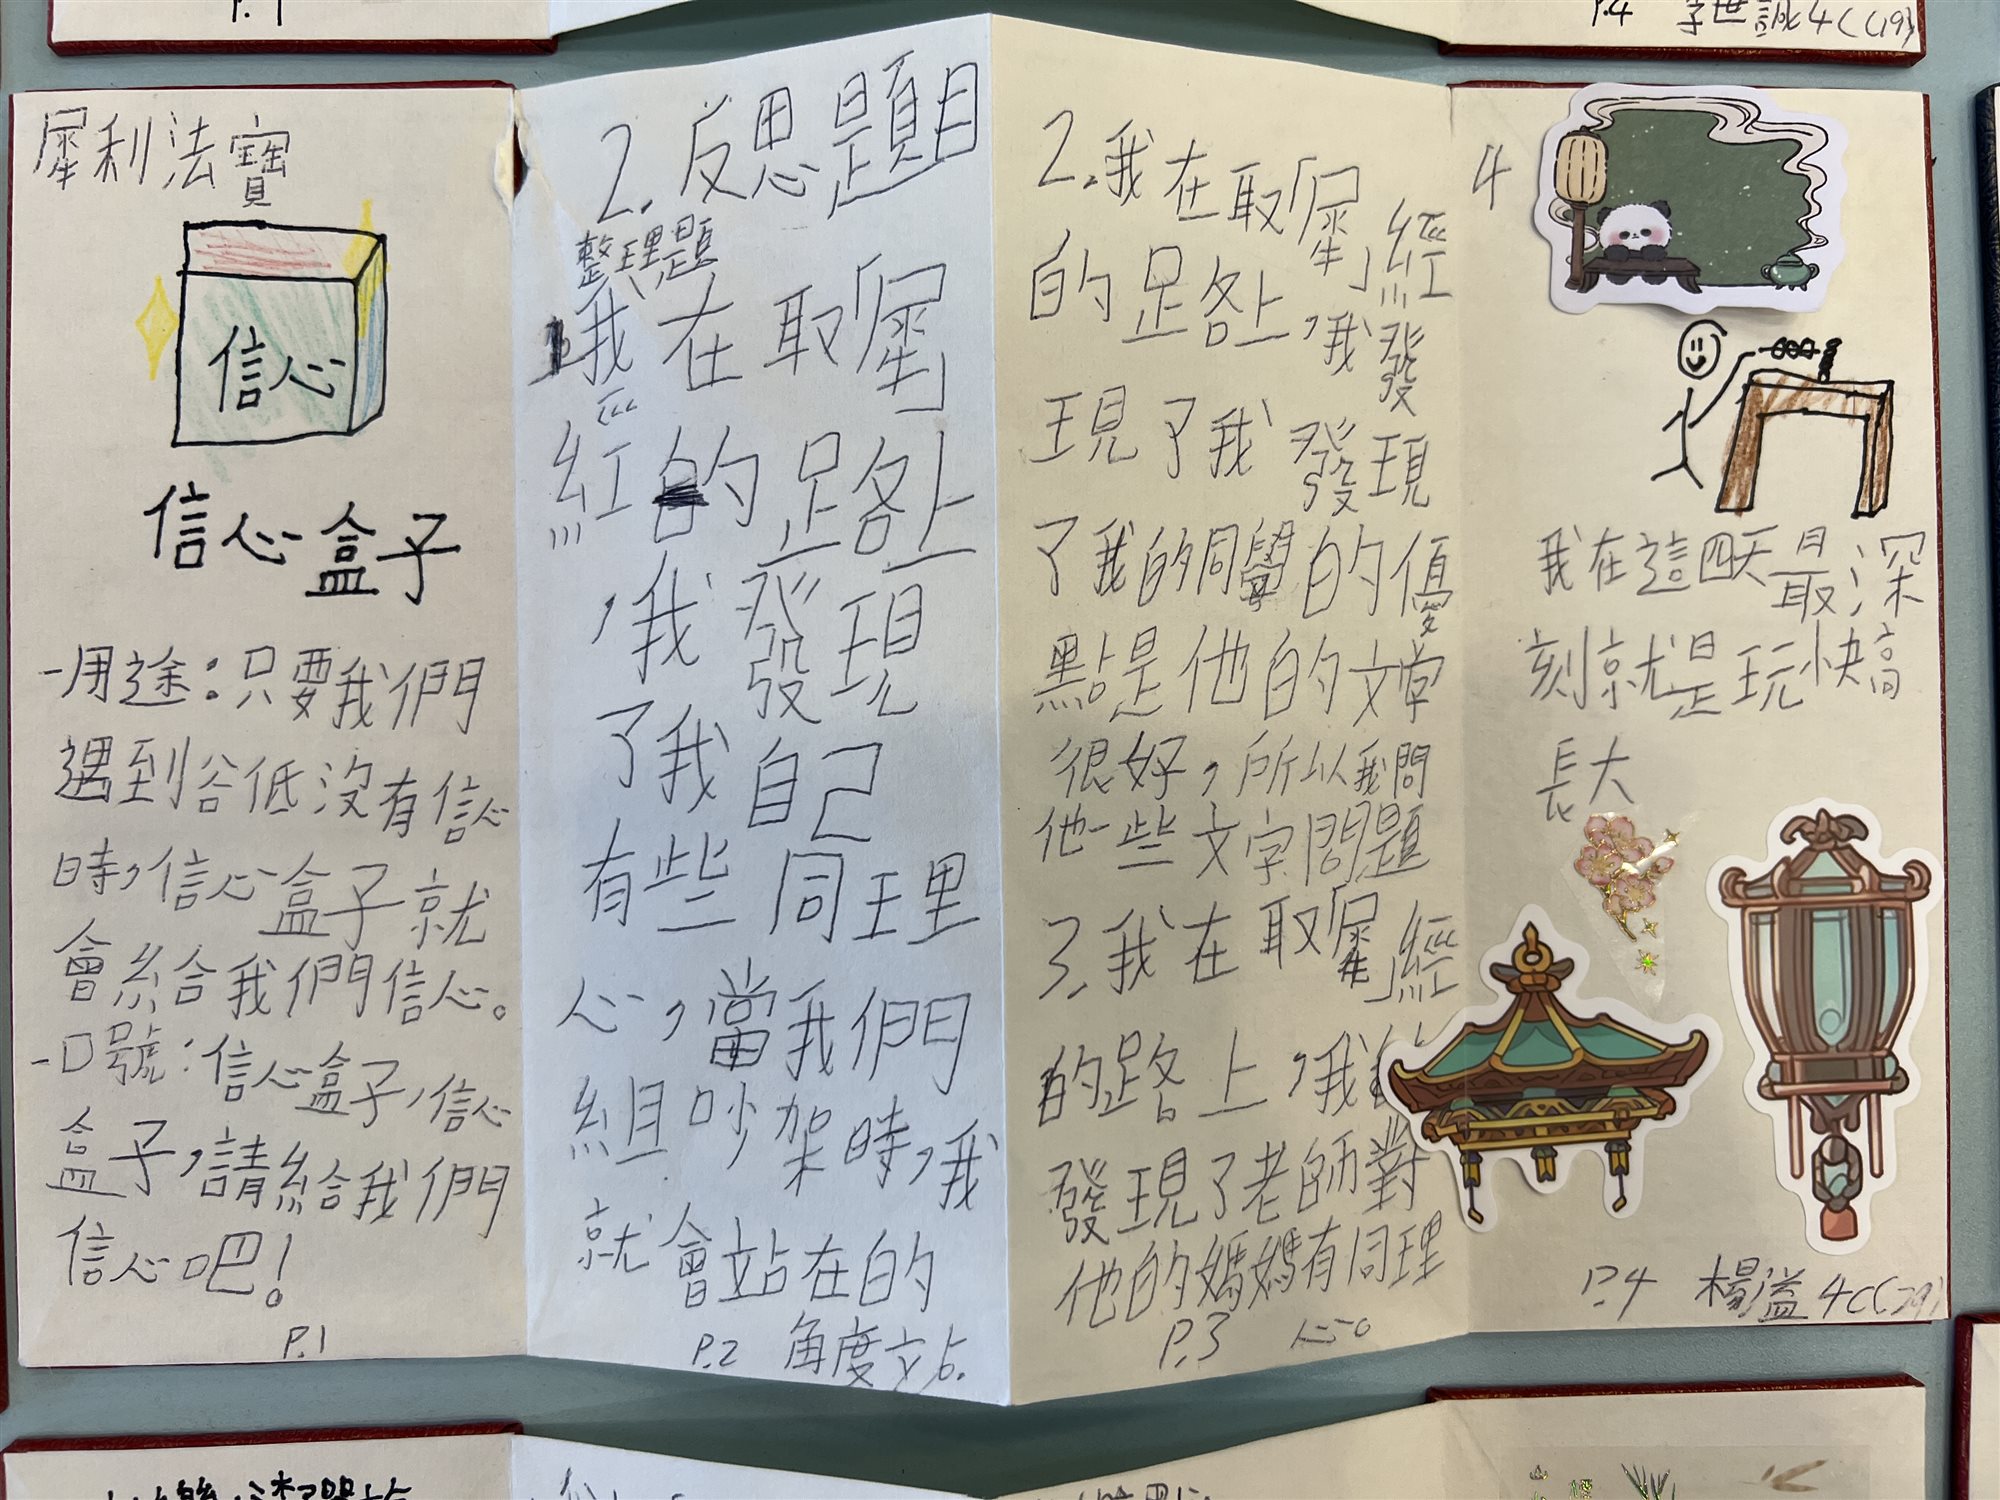 P.1
P.4
4C(19)
犀利法寶
信心
信心盒子
-用途：只要我們
遇到谷低沒有信心
時，信心盒子就
會給我們信心。
-口號：信心盒子，信心
盒子，請給我們
信心吧！
P.1
2.反思題目
整理題
1.我在取「犀」
經的路上
，我發現
了我自己
有些同理
心，當我們
組吵架時，我
就會站在的
角度站.
P.2
2.我在取「犀」經
的路上，我發
現了我發現
了我的同學的優
點是他的文字
很好，所以我問
他一些文字問題
3.我在取「犀」經
的路上，我
發現了老師對
他的媽媽有同理
心。
P.3
4
我在這四天最深
刻就是玩快高
長大
P.4 楊溢 4C(29)